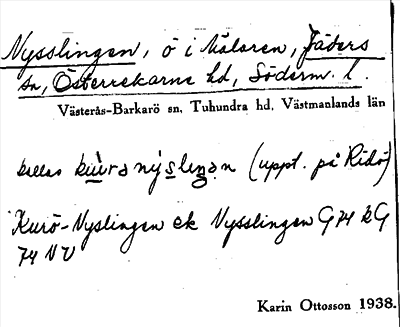 Nysslingen, ö i Mälaren, Jäders
sn, Österrekarne hd, Söderm. l.
Västerås-Barkarö sn, Tuhundra hd, Västmanlands län
kallas (uppt. på Ridö)
Kurö-Nyslingen ek Nysslingen G74 kG
74 NV
Karin Ottosson 1938.